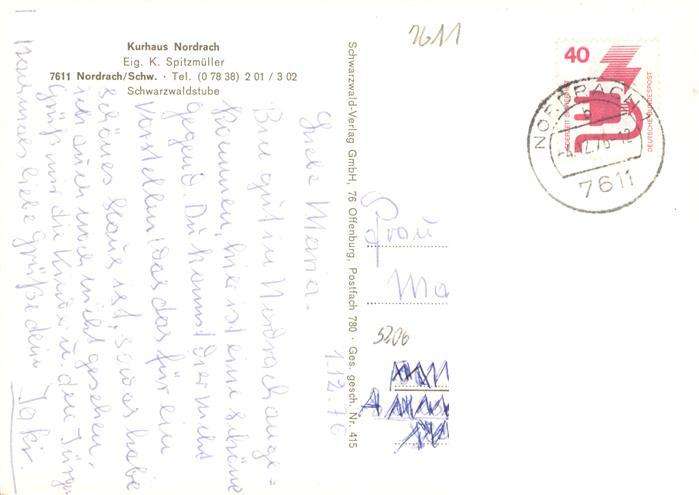 7611
Kurhaus Nordrach
Eig. K. Spitzmüller
7611 Nordrach/Schw. · Tel. (0 78 38) 2 01 / 3 02
Schwarzwaldstube
1.12.76
Liebe Maria.
Bin gut in Nordrach ange=
kommen, hier ist eine schöne
Gegend. Du kannst Dir nicht
vorstellen, was das für ein
schönes Haus ist, sowas habe
ich auch noch nicht gesehen.
Grüß mir die Kinder u. den Jürgen
Nochmals liebe Grüße dein
Schwarzwald-Verlag GmbH, 76 Offenburg, Postfach 780 · Ges. gesch. Nr. 415
40
DEUTSCHE BUNDESPOST
NORDRACH
7611
Frau
Ma
5206